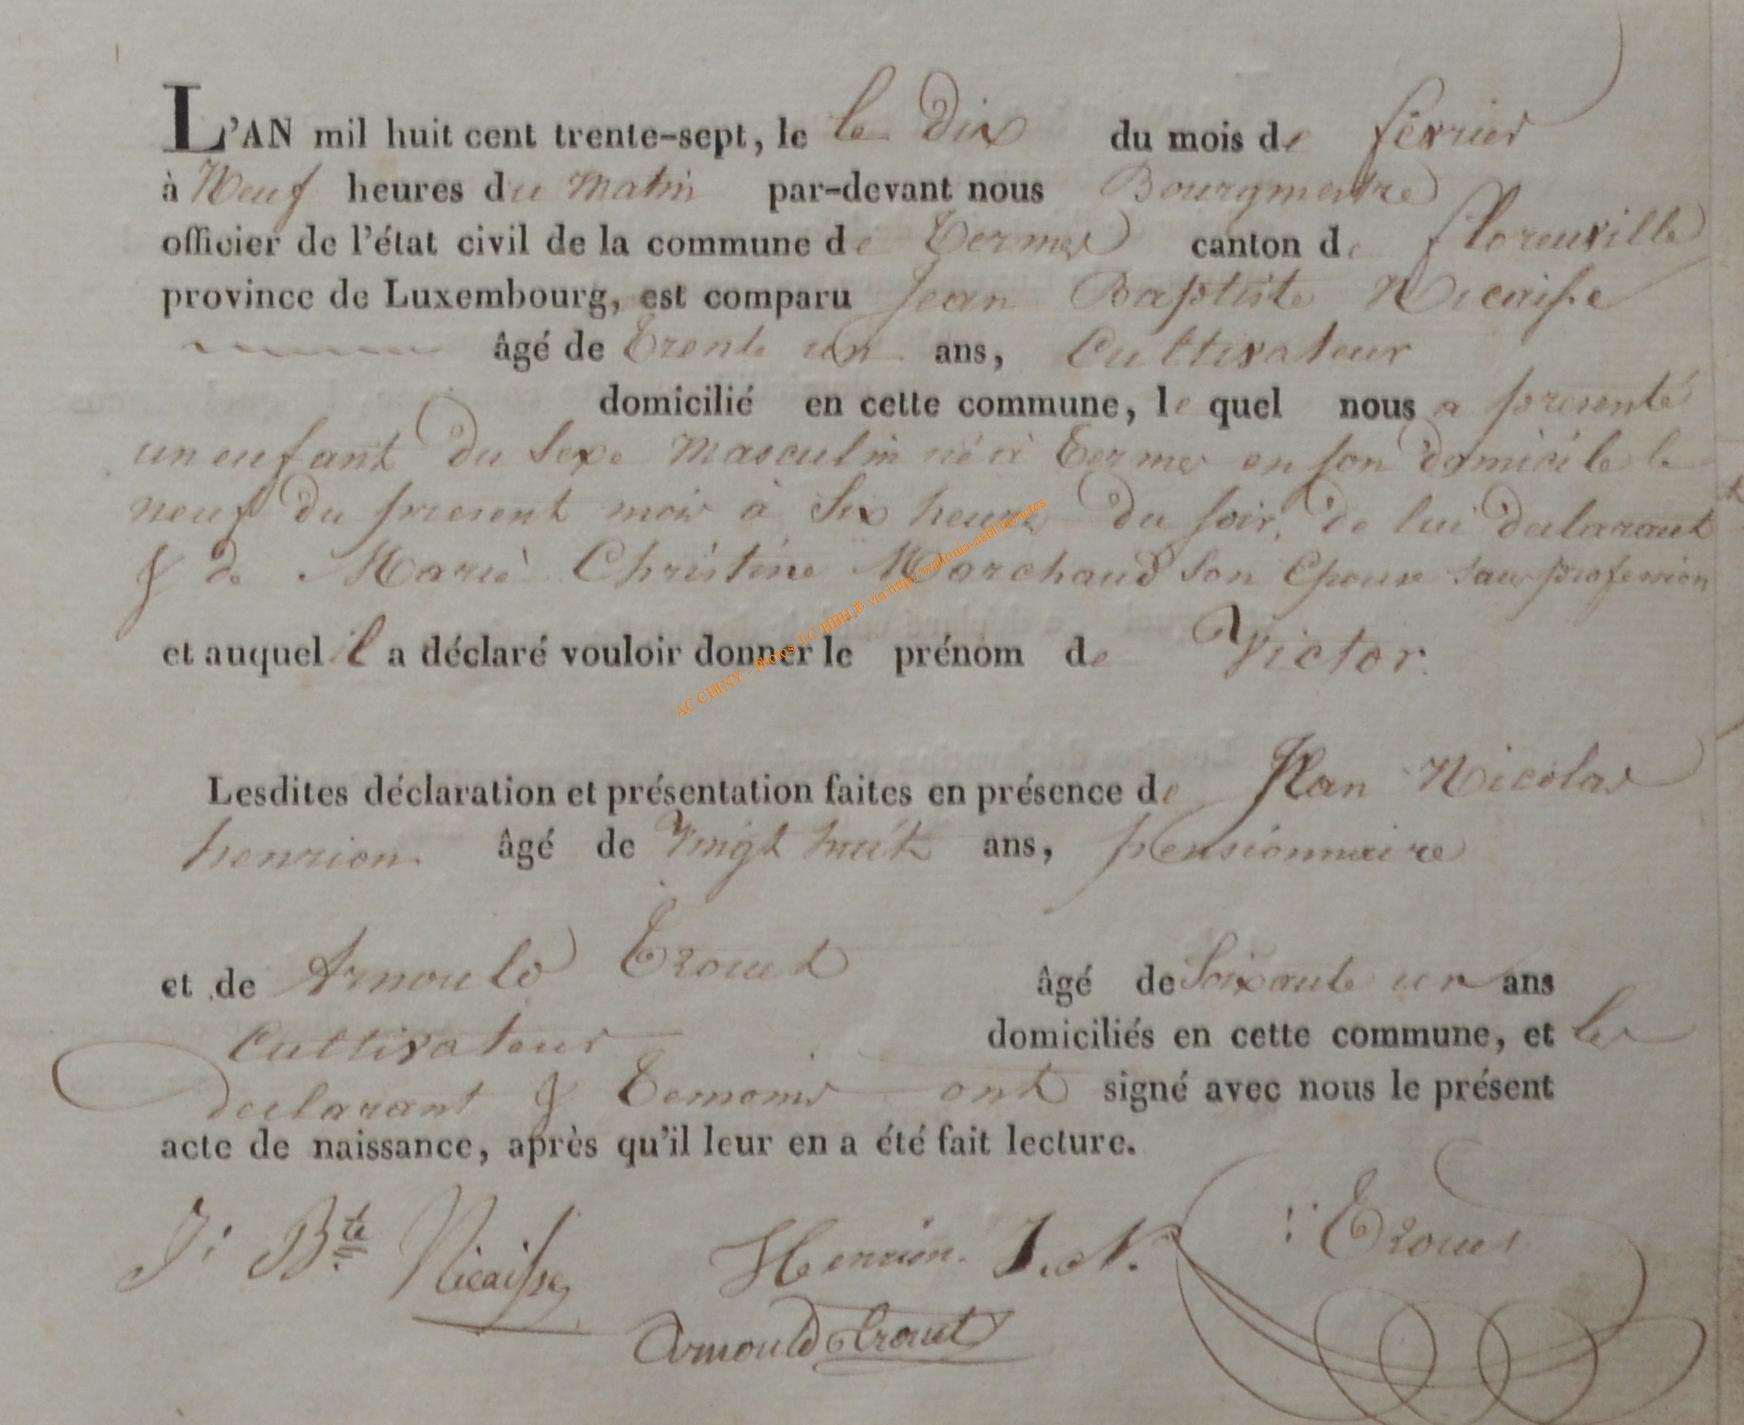 L'AN mil huit cent trente-sept, le le dix du mois de février
à Neuf heures du Matin par-devant nous Bourgmestre
officier de l'état civil de la commune de Termes canton de florenville
province de Luxembourg, est comparu Jean Baptiste Nicaisse
âgé de Trente un ans, Cultivateur
domicilié en cette commune, le quel nous a presenté
un enfant du Sexe Masculin né à Termes en son domicile le
neuf du present mois à Six heures du soir, de lui declarant
& de Marie Christine Marchand Son Epouse sans profession
et auquel il a déclaré vouloir donner le prénom de Victor.
Lesdites déclaration et présentation faites en présence de Jean Nicolas
henrion âgé de Vingt huit ans, pensionnaire
et de Arnould Trouet âgé de Soixante un ans
Cultivateur domiciliés en cette commune, et les
declarant & Temoins ont signé avec nous le présent
acte de naissance, après qu'il leur en a été fait lecture.
J: Bte Nicaisse Henrion J. N. Trouet
Arnould Trouet
AC CHINY - Photos J.C HBH.® via http://walonia-asbl.be/actes